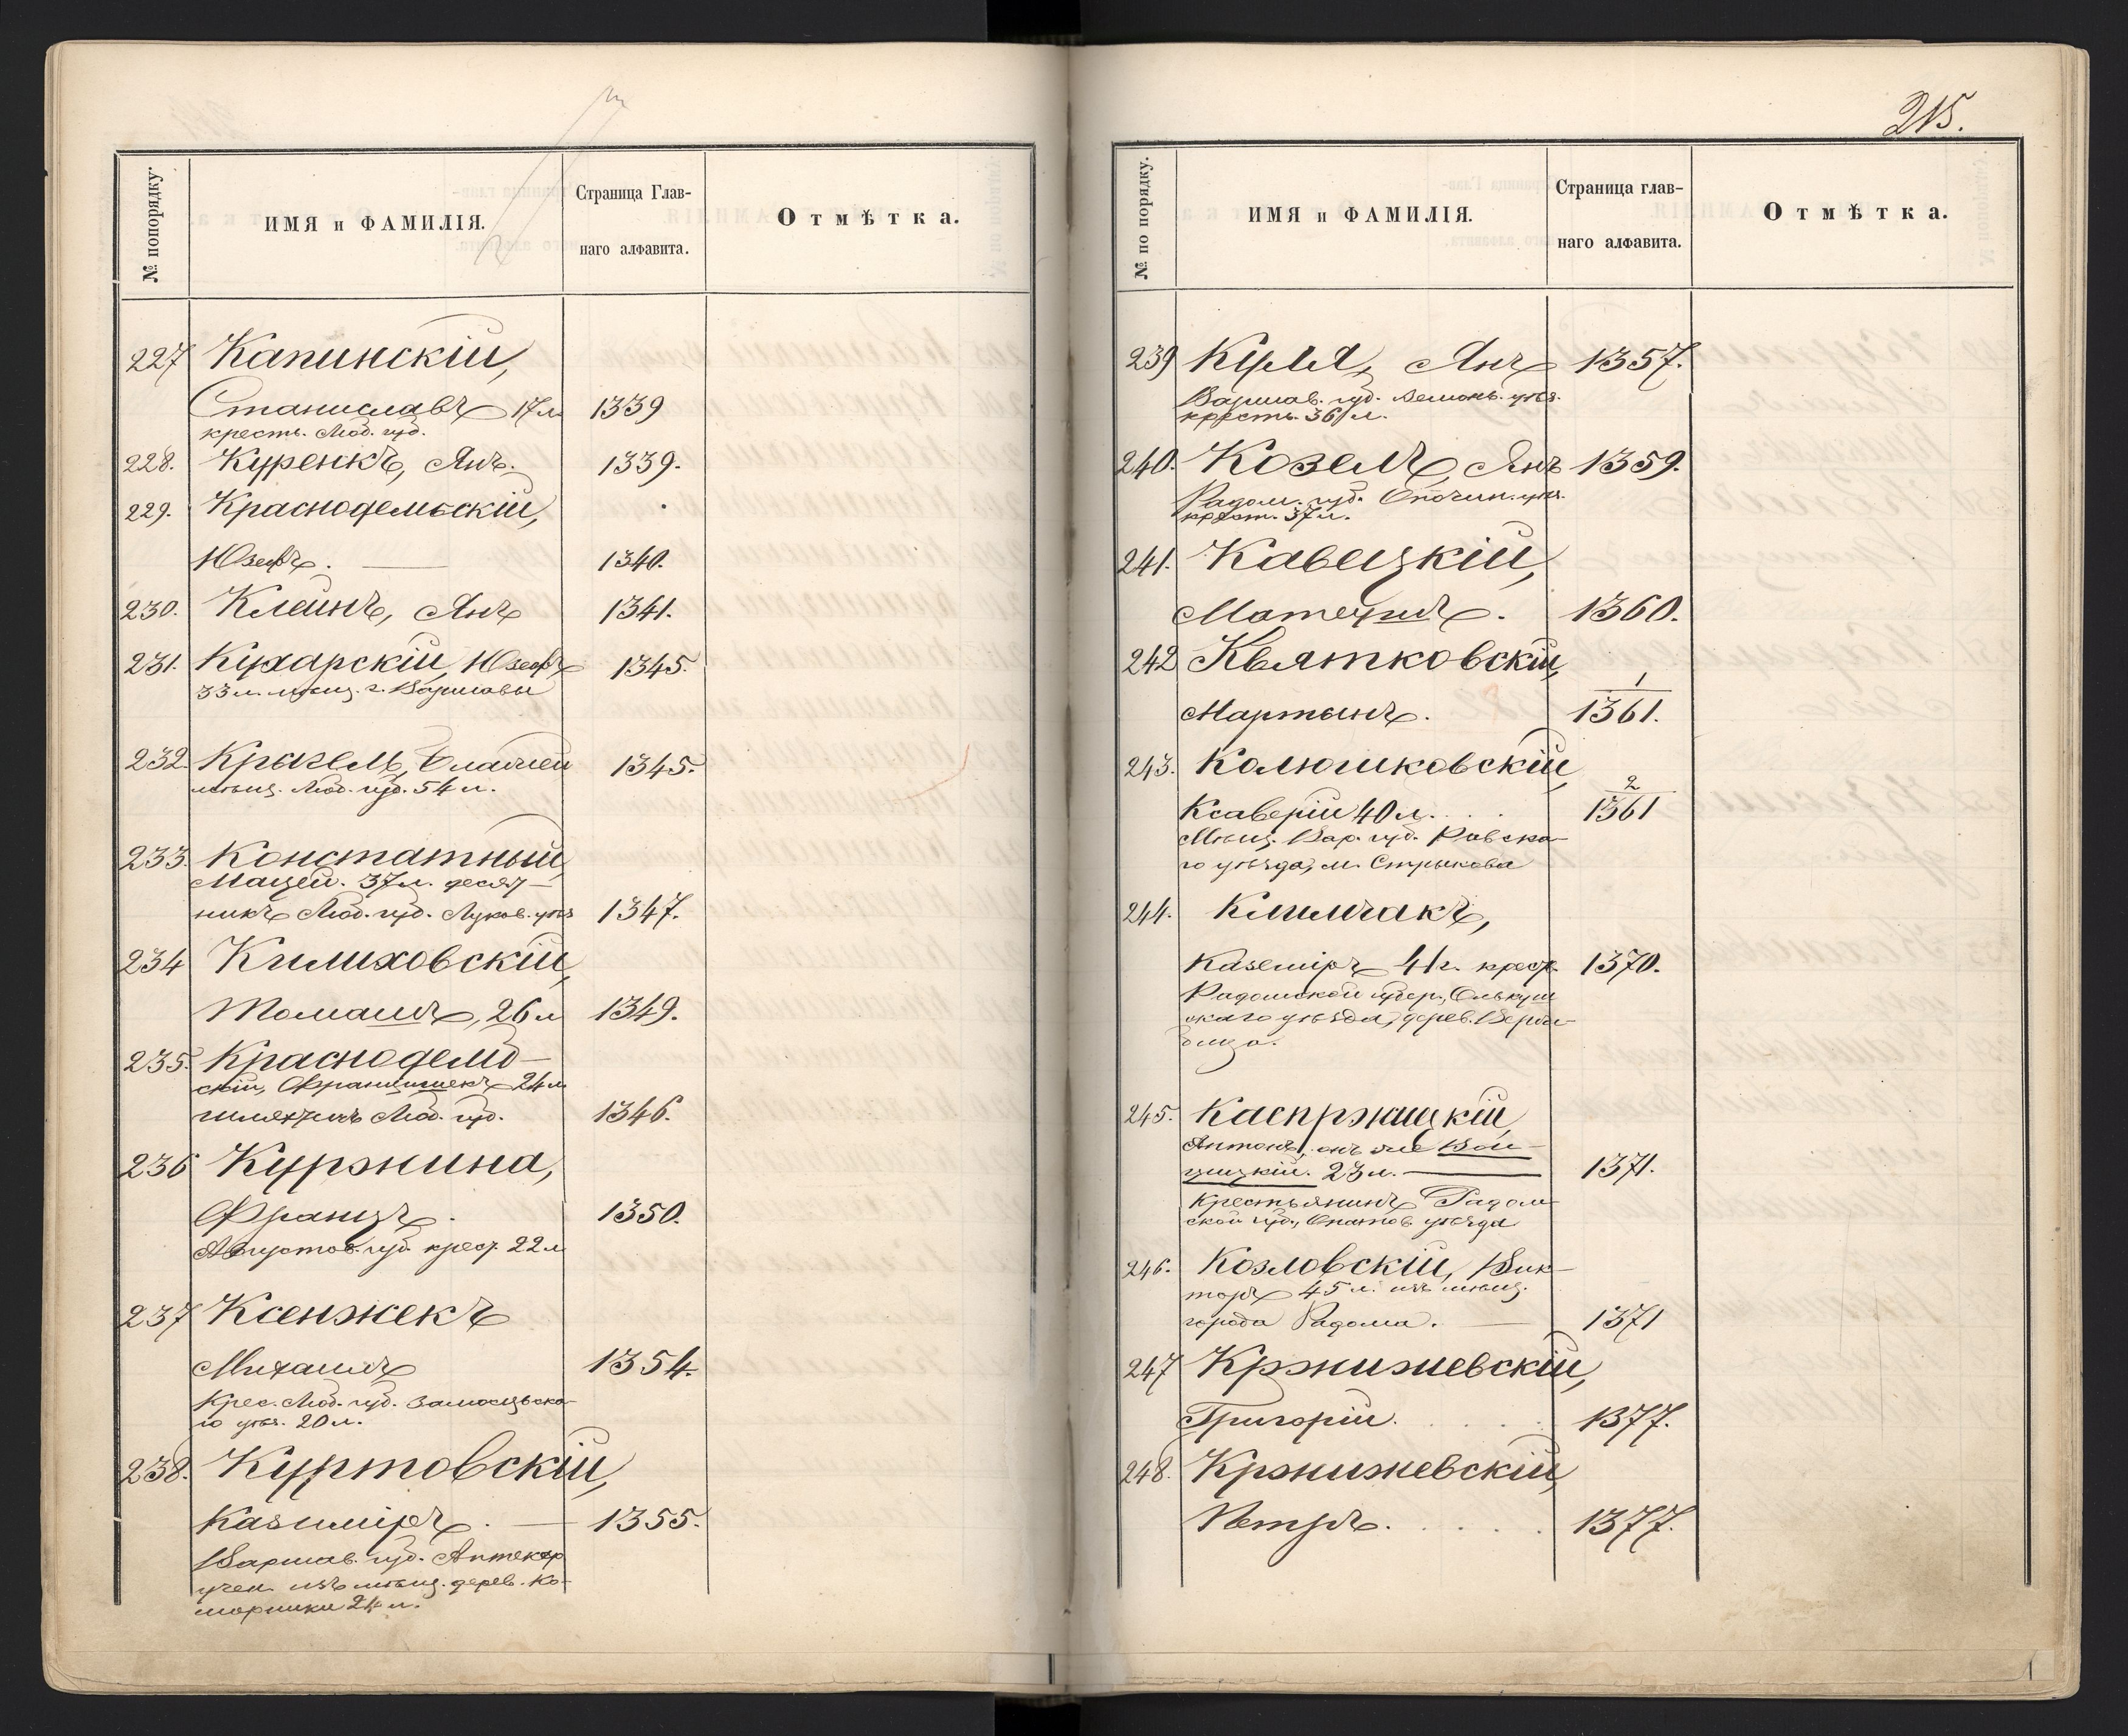 № попорядку.
ИМЯ и ФАМИЛІЯ.
Страница Глав-
наго алфавита.
Отмѣтка.
227 Капинскій,
Станиславъ 17 л 1339
кресть. Люб. губ.
228. Куренкъ, Янъ. 1339.
229. Краснодембскій,
Юзефъ. 1340.
230. Клейнъ, Янъ 1341.
231. Кухарскій, Юзефъ 1345.
33 л. мѣщ. г. Варшавы
232. Крыгель, 1345.
мѣщ. Люб. губ. 54 л.
233. Констатный,
Мацей. 37 л. десят-
никъ Люб. губ. Луков. уѣз 1347.
234 Килиховскій,
Томашъ, 26 л 1349.
235. Краснодемб-
скій, Францишекъ 24 л
шляхтичъ Люб. губ. 1346.
236 Куржина,
Францъ. 1350.
Августов. губ. крест. 22 л
237 Ксенжекъ
Михаилъ 1354.
Крес. Люб. губ. Замосцьска-
го уѣз. 20 л.
238. Куртовскій,
Казиміръ. 1355.
Варшав. губ. Аптекар
учен. изъ мѣщ. дерев. Ко-
морники 24 л.
215.
№ по порядку.
ИМЯ и ФАМИЛІЯ.
Страница глав-
наго алфавита.
Отмѣтка.
239 Янъ 1357.
Варшав. губ. уѣз.
кресть. 36 л.
240. Козелъ, Янъ 1359.
Радом. губ. Опочин. уѣз.
крест. 37 л.
241. Кавецкій,
Матеушъ. 1360.
242 Квятковскій, 1
Мартынъ. 1361.
243. Калюшковскій, 2
Ксаверій 40 л. 1361
Мѣщ. Вар. губ. Равска-
го уѣзда, м. Стрыкова
244. Климчакъ,
Каземіръ 41 г. крест. 1370.
Радомской губер., Олькуш
скаго уѣзда, дерев.
245. Каспржицкій,
Антонъ, онъ же Вой-
цицкій. 23 л. 1371.
Крестьянинъ Радом-
ской губ., Опатов. уѣзда
246. Козловскій, Вик-
торъ 45 л. изъ мѣщ.
города Радома. 1371
247 Кржижевскій,
Григорій. 1377.
248. Кржижевскій,
Петръ. 1377.